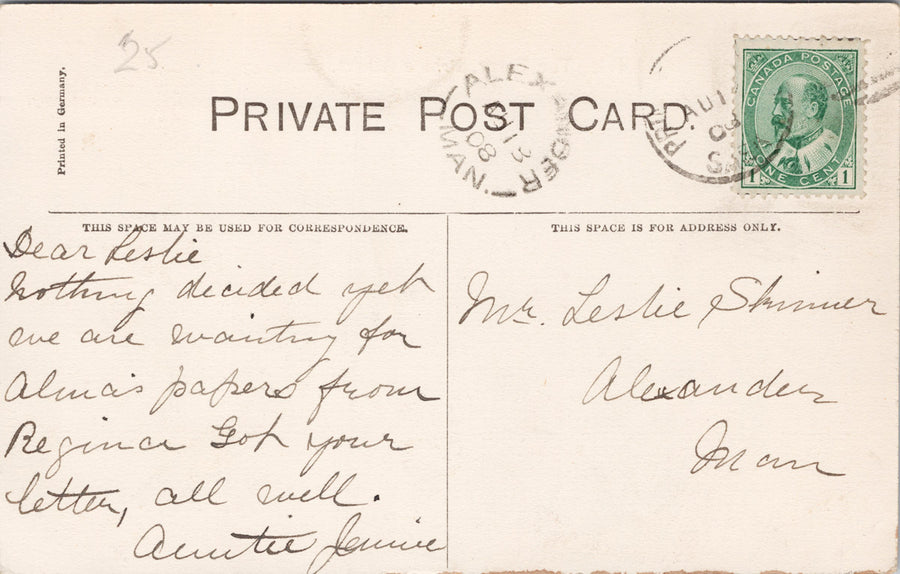 25
Printed in Germany.
PRIVATE POST CARD.
ALEXANDER
13
08
MAN.
PE
AU 1
08
CANADA POSTAGE
1 ONE CENT 1
THIS SPACE MAY BE USED FOR CORRESPONDENCE.
Dear Leslie
Nothing decided yet
we are waiting for
Alma's papers from
Regina Got your
letter, all well.
Auntie Jennie
THIS SPACE IS FOR ADDRESS ONLY.
Mr. Leslie Skinner
Alexander
Man